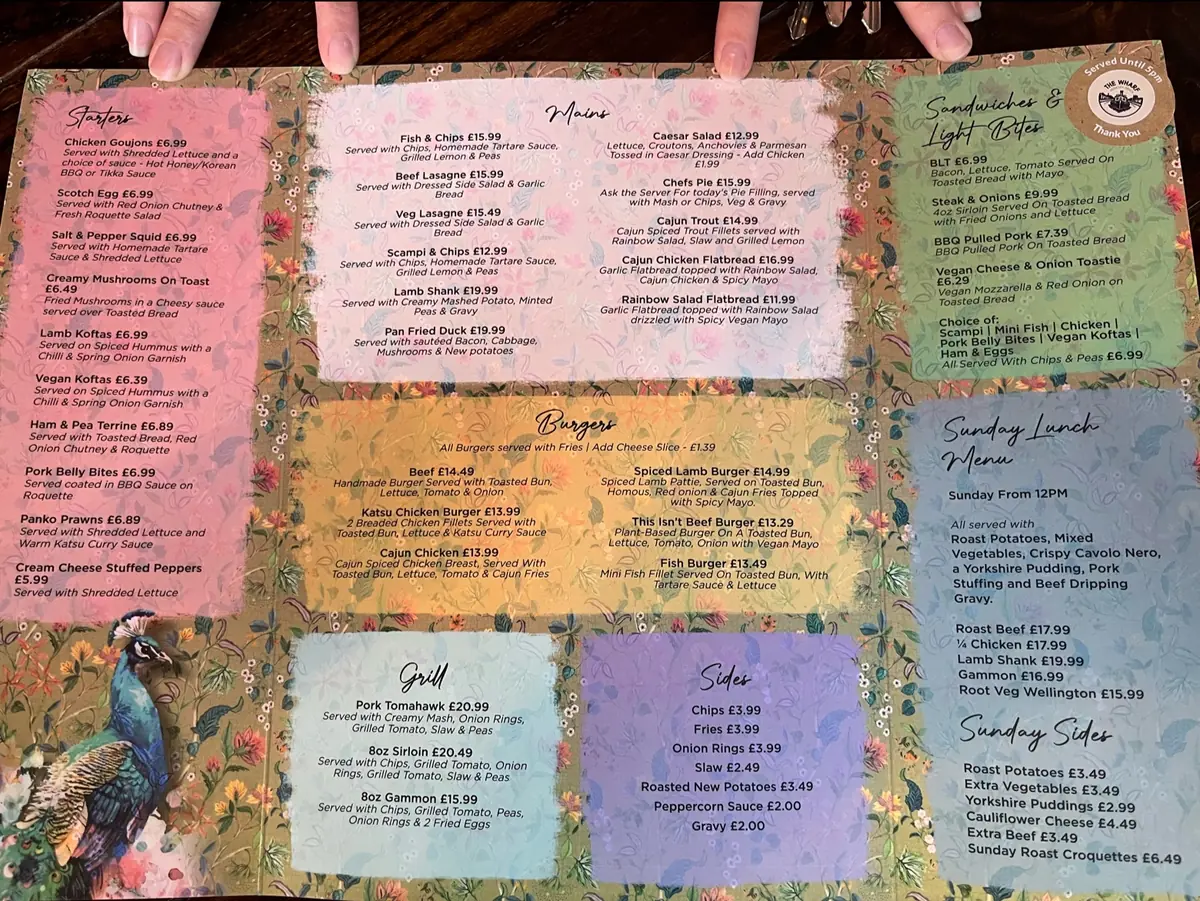 Starters
Chicken Goujons £6.99
Served with Shredded Lettuce and a
choice of sauce - Hot Honey/Korean
BBQ or Tikka Sauce
Scotch Egg £6.99
Served with Red Onion Chutney &
Fresh Roquette Salad
Salt & Pepper Squid £6.99
Served with Homemade Tartare
Sauce & Shredded Lettuce
Creamy Mushrooms On Toast
£6.49
Fried Mushrooms in a Cheesy sauce
served over Toasted Bread
Lamb Koftas £6.99
Served on Spiced Hummus with a
Chilli & Spring Onion Garnish
Vegan Koftas £6.39
Served on Spiced Hummus with a
Chilli & Spring Onion Garnish
Ham & Pea Terrine £6.89
Served with Toasted Bread, Red
Onion Chutney & Roquette
Pork Belly Bites £6.99
Served coated in BBQ Sauce on
Roquette
Panko Prawns £6.89
Served with Shredded Lettuce and
Warm Katsu Curry Sauce
Cream Cheese Stuffed Peppers
£5.99
Served with Shredded Lettuce
Mains
Fish & Chips £15.99
Served with Chips, Homemade Tartare Sauce,
Grilled Lemon & Peas
Beef Lasagne £15.99
Served with Dressed Side Salad & Garlic
Bread
Veg Lasagne £15.49
Served with Dressed Side Salad & Garlic
Bread
Scampi & Chips £12.99
Served with Chips, Homemade Tartare Sauce,
Grilled Lemon & Peas
Lamb Shank £19.99
Served with Creamy Mashed Potato, Minted
Peas & Gravy
Pan Fried Duck £19.99
Served with sautéed Bacon, Cabbage,
Mushrooms & New potatoes
Caesar Salad £12.99
Lettuce, Croutons, Anchovies & Parmesan
Tossed in Caesar Dressing - Add Chicken
£1.99
Chefs Pie £15.99
Ask the Server For today's Pie Filling, served
with Mash or Chips, Veg & Gravy
Cajun Trout £14.99
Cajun Spiced Trout Fillets served with
Rainbow Salad, Slaw and Grilled Lemon
Cajun Chicken Flatbread £16.99
Garlic Flatbread topped with Rainbow Salad,
Cajun Chicken & Spicy Mayo
Rainbow Salad Flatbread £11.99
Garlic Flatbread topped with Rainbow Salad
drizzled with Spicy Vegan Mayo
Burgers
All Burgers served with Fries | Add Cheese Slice - £1.39
Beef £14.49
Handmade Burger Served with Toasted Bun,
Lettuce, Tomato & Onion
Katsu Chicken Burger £13.99
2 Breaded Chicken Fillets Served with
Toasted Bun, Lettuce & Katsu Curry Sauce
Cajun Chicken £13.99
Cajun Spiced Chicken Breast, Served With
Toasted Bun, Lettuce, Tomato & Cajun Fries
Spiced Lamb Burger £14.99
Spiced Lamb Pattie, Served on Toasted Bun,
Homous, Red onion & Cajun Fries Topped
with Spicy Mayo.
This Isn't Beef Burger £13.29
Plant-Based Burger On A Toasted Bun,
Lettuce, Tomato, Onion with Vegan Mayo
Fish Burger £13.49
Mini Fish Fillet Served On Toasted Bun, With
Tartare Sauce & Lettuce
Grill
Pork Tomahawk £20.99
Served with Creamy Mash, Onion Rings,
Grilled Tomato, Slaw & Peas
8oz Sirloin £20.49
Served with Chips, Grilled Tomato, Onion
Rings, Grilled Tomato, Slaw & Peas
8oz Gammon £15.99
Served with Chips, Grilled Tomato, Peas,
Onion Rings & 2 Fried Eggs
Sides
Chips £3.99
Fries £3.99
Onion Rings £3.99
Slaw £2.49
Roasted New Potatoes £3.49
Peppercorn Sauce £2.00
Gravy £2.00
Served Until 5pm
THE WHARF
Thank You
Sandwiches &
Light Bites
BLT £6.99
Bacon, Lettuce, Tomato Served On
Toasted Bread with Mayo
Steak & Onions £9.99
4oz Sirloin Served On Toasted Bread
with Fried Onions and Lettuce
BBQ Pulled Pork £7.39
BBQ Pulled Pork On Toasted Bread
Vegan Cheese & Onion Toastie
£6.29
Vegan Mozzarella & Red Onion on
Toasted Bread
Choice of:
Scampi | Mini Fish | Chicken |
Pork Belly Bites | Vegan Koftas |
Ham & Eggs
All Served With Chips & Peas £6.99
Sunday Lunch
Menu
Sunday From 12PM
All served with
Roast Potatoes, Mixed
Vegetables, Crispy Cavolo Nero,
a Yorkshire Pudding, Pork
Stuffing and Beef Dripping
Gravy.
Roast Beef £17.99
¼ Chicken £17.99
Lamb Shank £19.99
Gammon £16.99
Root Veg Wellington £15.99
Sunday Sides
Roast Potatoes £3.49
Extra Vegetables £3.49
Yorkshire Puddings £2.99
Cauliflower Cheese £4.49
Extra Beef £3.49
Sunday Roast Croquettes £6.49